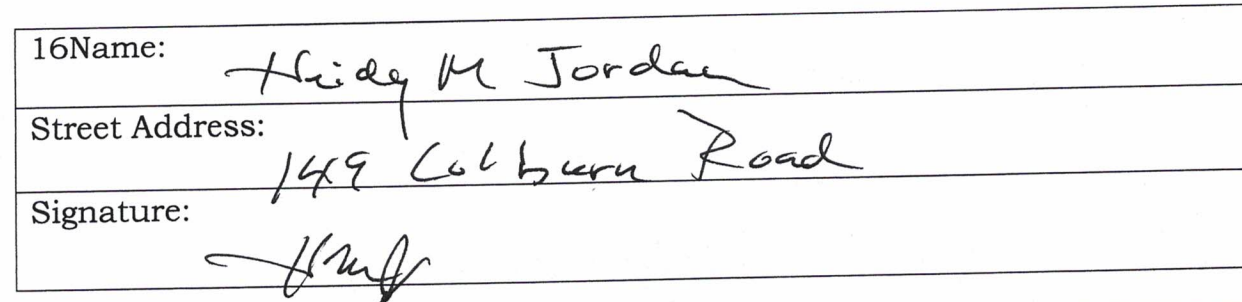 16Name: Heidy M Jordan
Street Address: 149 Colburn Road
Signature: HMJ